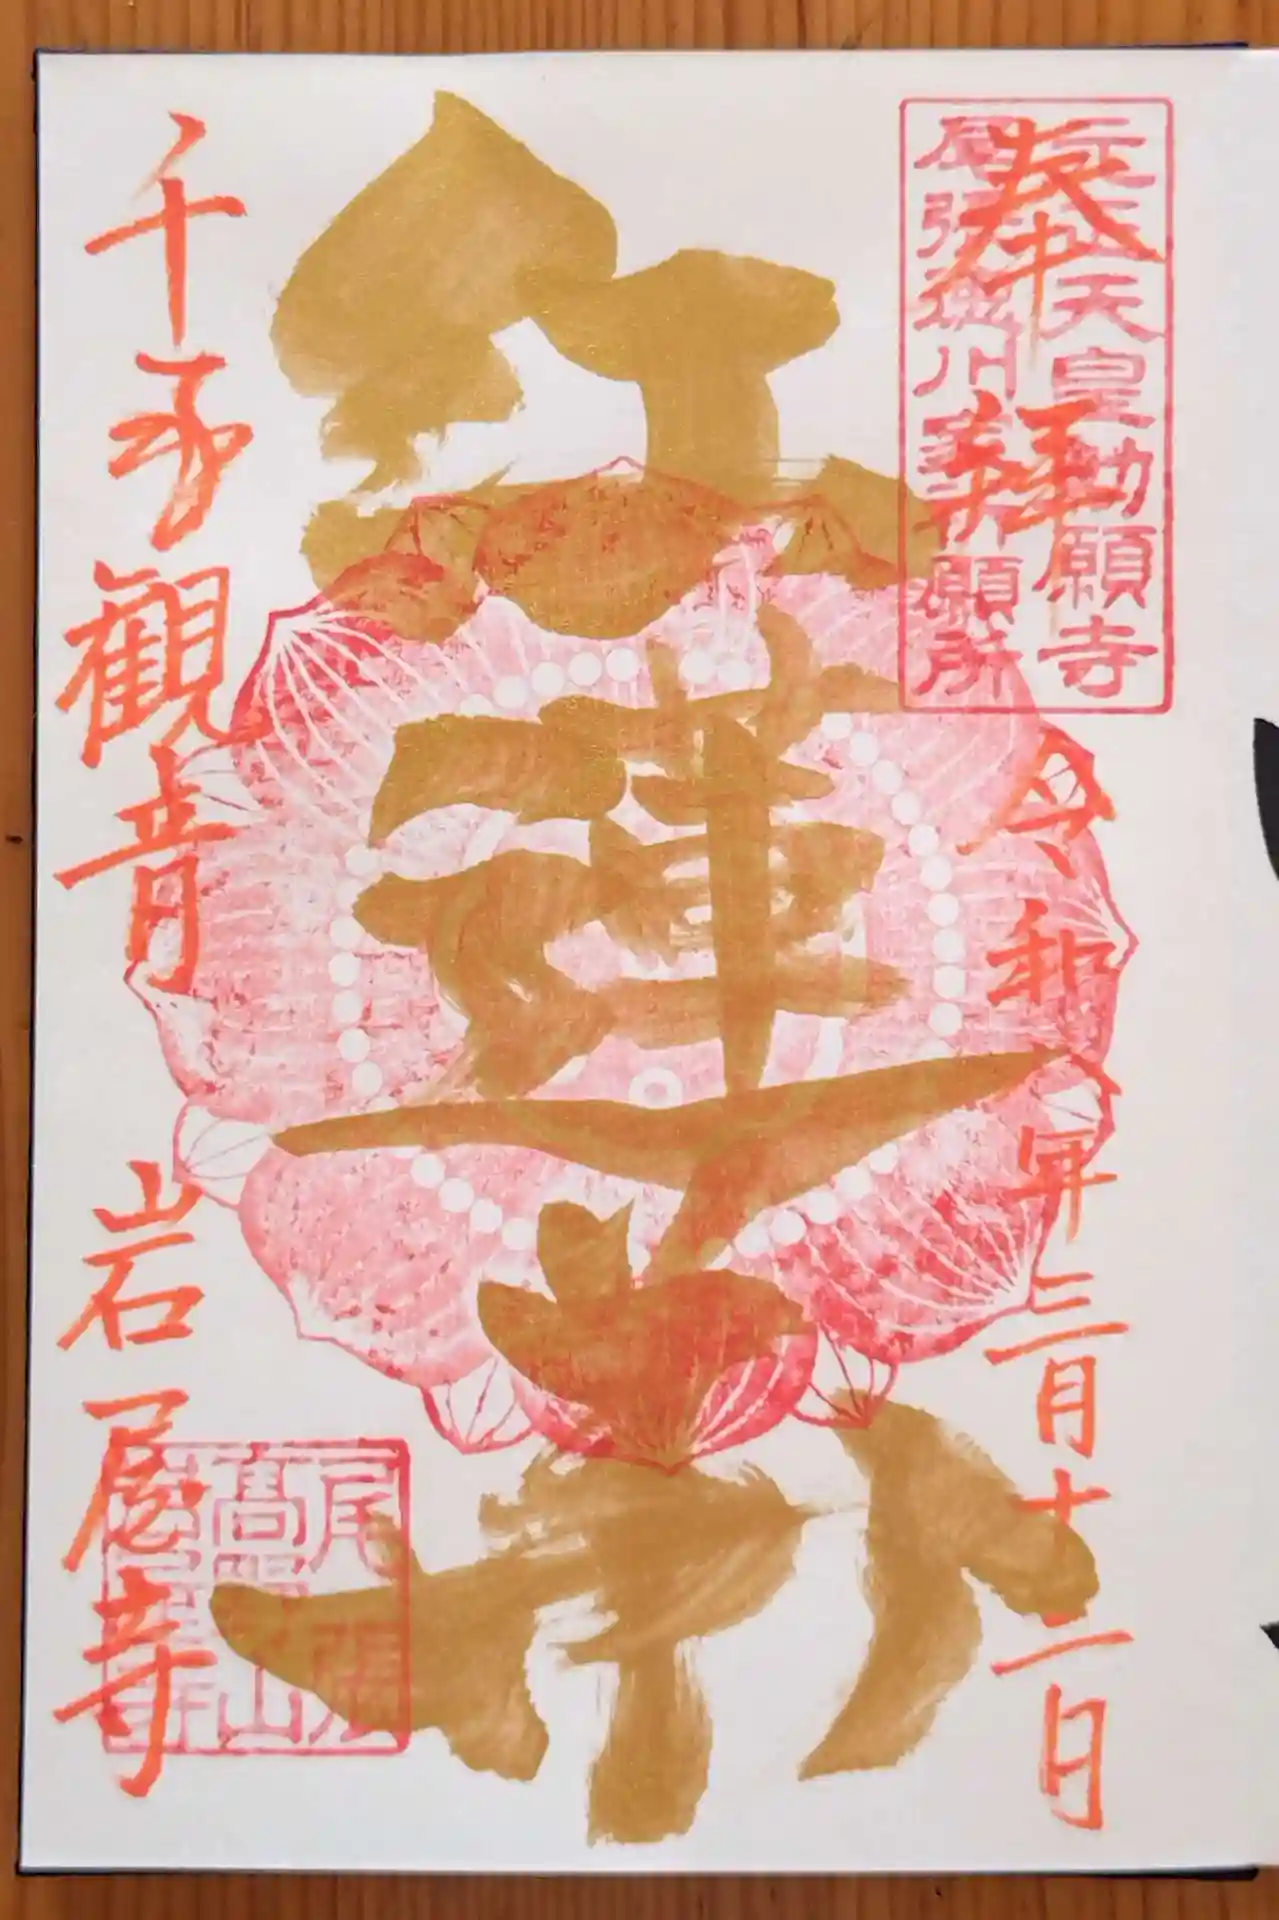 元正天皇勅願寺
尾張徳川家祈願所
奉拝
令和 年三月十二日
紅蓮
千手観音 岩屋寺
尾張
高野山
岩屋寺